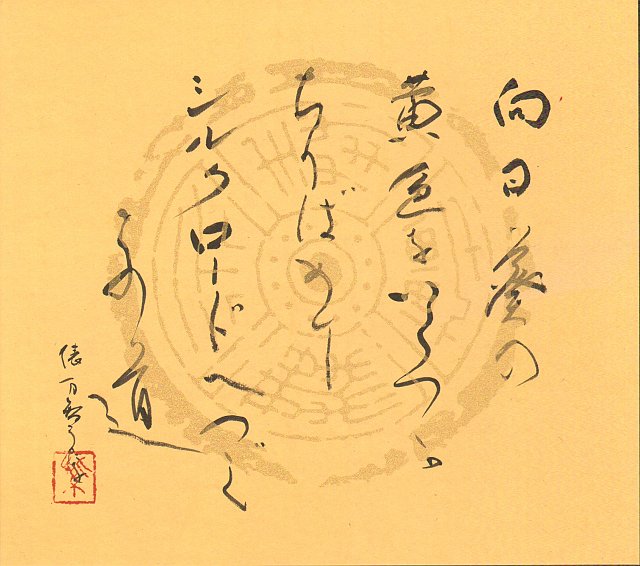 向日葵の
黄色をいくつか
ちりばめし
シルクロードへつづく
この道
俵万智